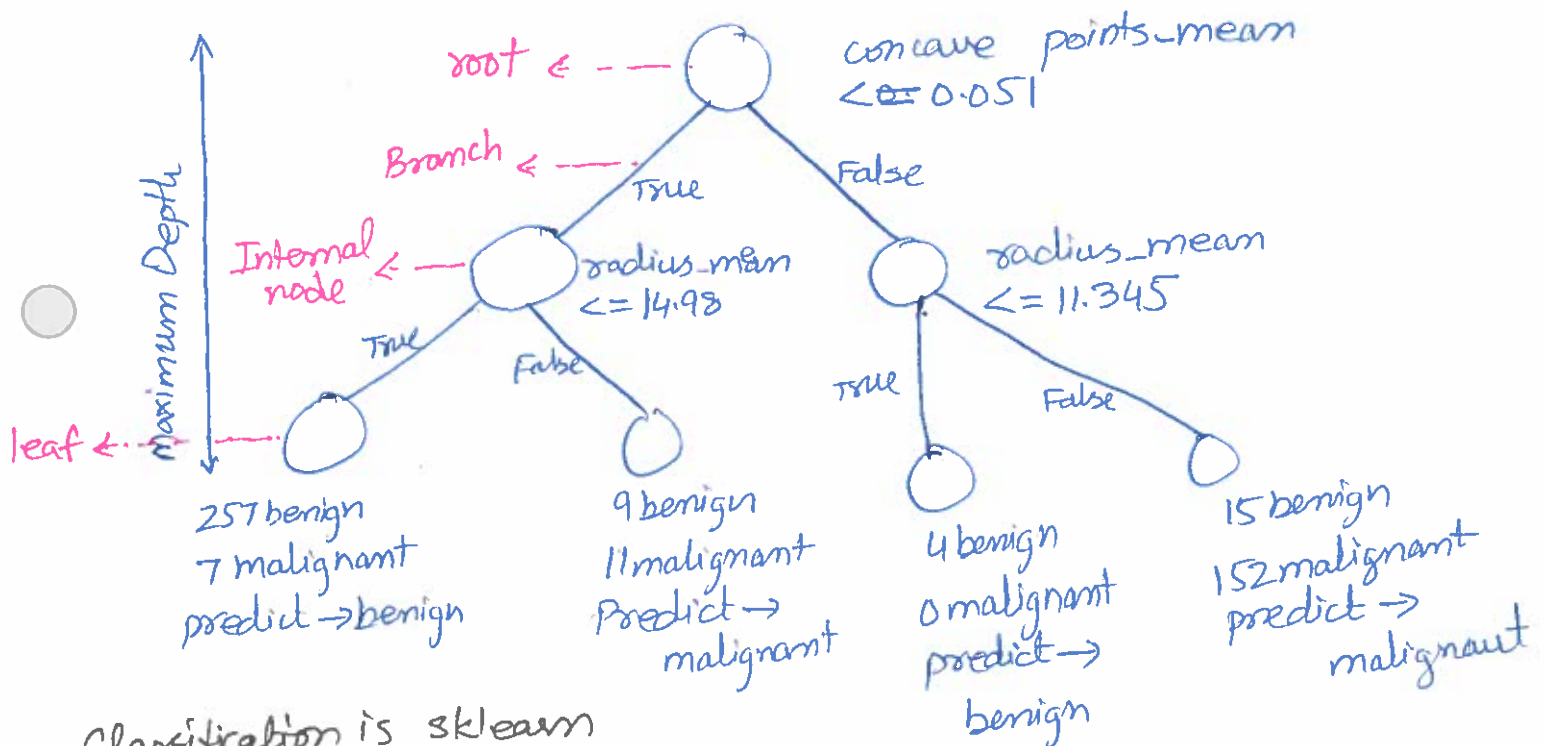 root
concave points_mean
<= 0.051
Branch
True
False
Maximum Depth
Internal
node
radius_mean
<= 14.98
radius_mean
<= 11.345
True
False
True
False
leaf
257 benign
7 malignant
predict → benign
9 benign
11 malignant
Predict →
malignant
4 benign
0 malignant
predict →
benign
15 benign
152 malignant
predict →
malignant
Classification is sklearn